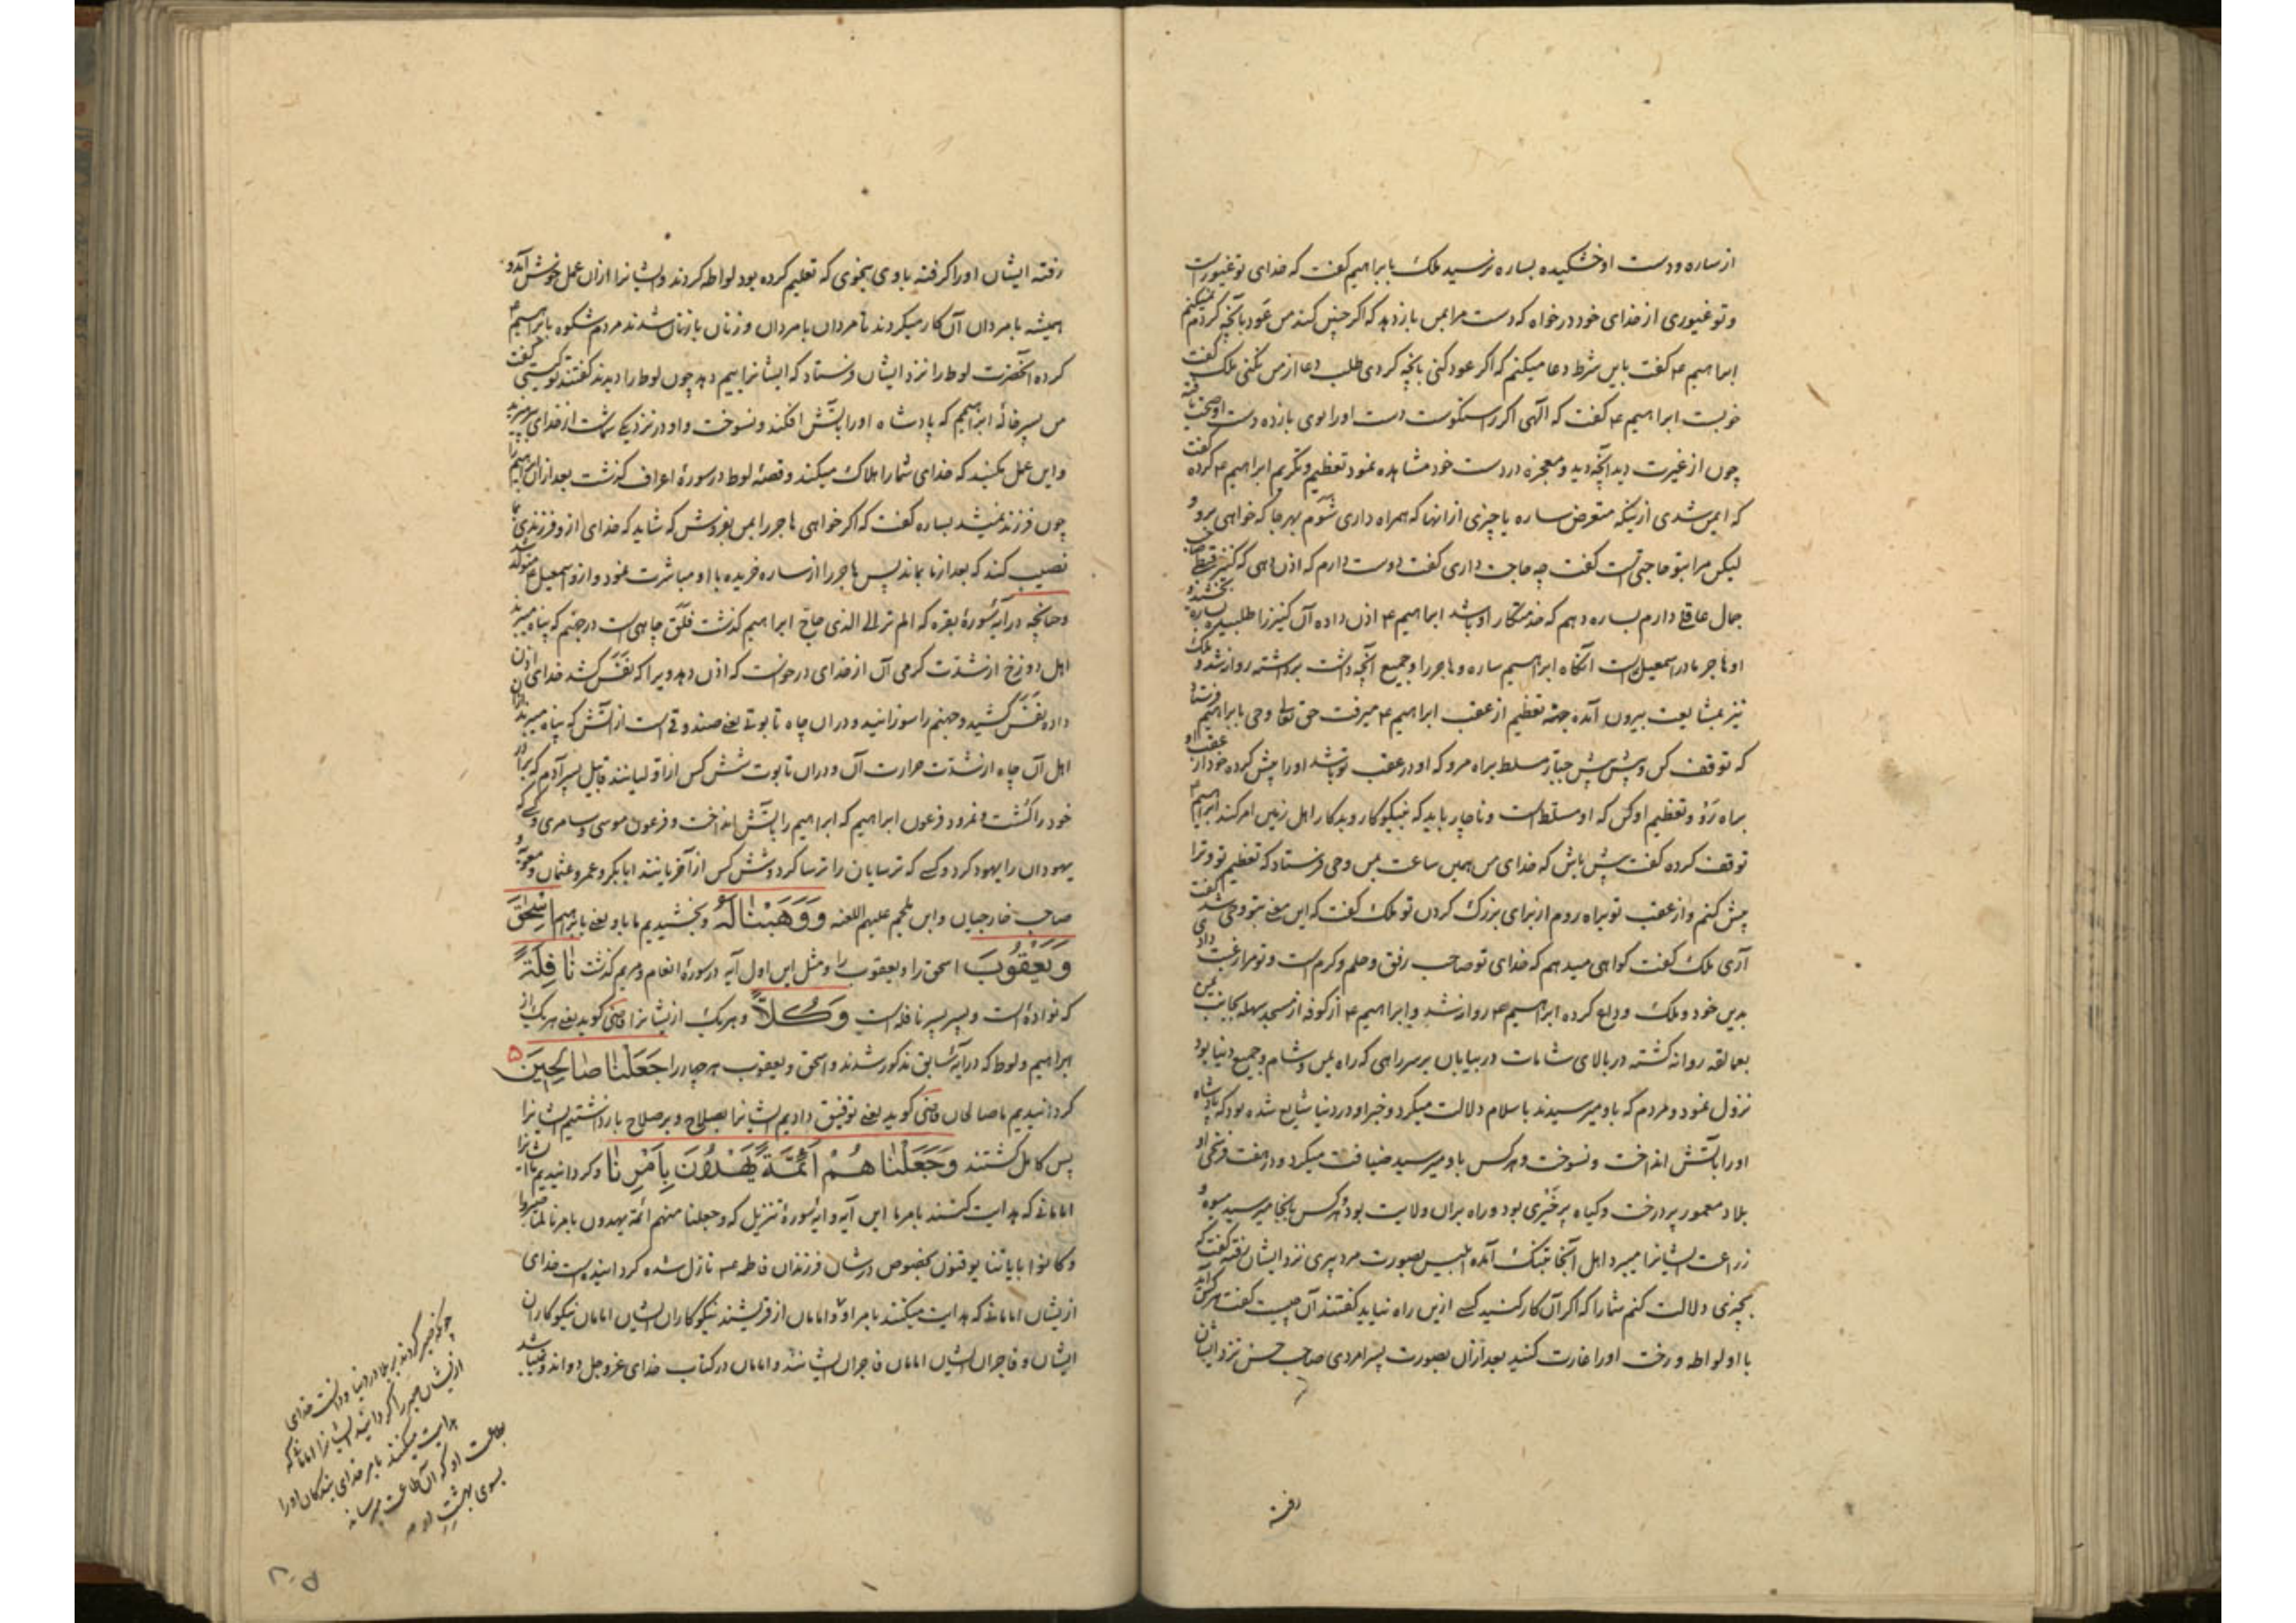 از ساره و دست او خشکیده بساره نرسید ملک بابراهیم گفت که خدای تو غیور است
و تو غیوری از خدای خود درخواه که دست مرا بمن باز دهد که اگر چنین کند من عود بآنچه کردم نمیکنم
ابراهیم ع گفت باین شرط دعا میکنم که اگر عود کنی بآنچه کردی طلب دعا از من نکنی ملک گفت
خوبست ابراهیم ع گفت که الهی اگر راستگوست دست او را بوی باز ده دست او صحت یافته
چون از غیرت دید آنچه دید و معجزه در دست خود مشاهده نمود تعظیم و تکریم ابراهیم ع کرده گفت
که ایمن شدی ازینکه متعرض ساره یا چیزی از آنها که همراه داری شوم بهر جا که خواهی برو و
لیکن مرا بتو حاجتی است گفت چه حاجت داری گفت دوست دارم که اذن دهی که کنیز قبطیه صاحب
جمال عاقلی دارم بساره دهم که خدمتکار او باشد ابراهیم ع اذن داده آن کنیز را طلبیده بساره بخشید و
او هاجر مادر اسمعیل است آنگاه ابراهیم ساره و هاجر را و جمیع آنچه داشت برداشته روانه شد و ملک
نیز بمشایعت بیرون آمده جهة تعظیم از عقب ابراهیم ع میرفت حق تعالی وحی بابراهیم فرستاد
که توقف کن و پیش پیش جبار مسلط براه مرو که او در عقب تو باشد او را پیش کرده خود از عقب او
براه رو و تعظیم او کن که او مسلط است و ناچار باید که نیکوکار و بدکار اهل زمین امر کند ابراهیم ع
توقف کرده گفت پیش باش که خدای من همین ساعت بمن وحی فرستاد که تعظیم تو و ترا
پیش کنم و از عقب تو براه روم از برای بزرگ کردن تو ملک گفت که این معنی بتو وحی شد گفت
آری ملک گفت گواهی میدهم که خدای تو صاحب رفق و حلم و کرم است و تو مرا رغبت دادی
بدین خود و ملک وداع کرده ابراهیم ع روانه شد و ابراهیم ع از کوفه از مسجد سهله بجانب یمن
بعمالقه روانه گشته در بالای شامات در بیابان بر سر راهی که راه یمن و شام و جمیع دنیا بود
نزول نمود و مردم که باو میرسیدند باسلام دلالت میکرد و خبر او در دنیا شایع شده بود که پادشاه
او را بآتش انداخت و نسوخت و هر کس باو میرسید ضیافت میکرد و در هفت فرسخی او
بلاد معمور پر درخت و گیاه پر خیری بود و راه بران ولایت بود و هر کس بآنجا میرسید میوه و
زراعت ایشانرا میبرد اهل آنجا بتنگ آمده ابلیس بصورت مرد پیری نزد ایشان رفته گفت که
بچیزی دلالت کنم شما را که اگر آن کار کنید کسی ازین راه نیاید گفتند آن چیست گفت هر کس آید
با او لواطه و رخت او را غارت کنید بعد از آن بصورت پسر امردی صاحب حسن نزد ایشان
رفته
رفته ایشان او را گرفته باوی بنحوی که تعلیم کرده بود لواطه کردند و ایشانرا از ان عمل خوش آمد و
همیشه با مردان آن کار میکردند تا مردان با مردان و زنان با زنان شدند مردم شکوه بابراهیم ع
کرده آنحضرت لوط را نزد ایشان فرستاد که ایشانرا بیم دهد چون لوط را دیدند گفتند تو کیستی گفت
من پسر خاله ابراهیم که پادشاه او را بآتش افکند و نسوخت و او در نزدیک شماست از خدای بپرهیزید
و این عمل مکنید که خدای شما را هلاک میکند و قصه لوط در سورۀ اعراف گذشت بعد از ان ابراهیم را
چون فرزند نمیشد بساره گفت که اگر خواهی هاجر را بمن بفروش که شاید که خدای ازو فرزندی بما
نصیب کند که بعد از ما بماند پس هاجر را از ساره خریده با او مباشرت نمود و ازو اسمعیل ع متولد شد
و چنانچه در آیۀ سورۀ بقره که الم تر الی الذی حاج ابراهیم گذشت فلق چاهی است در جهنم که پناه میبرند
اهل دوزخ از شدت گرمی آن از خدای درخواست که اذن دهد ویرا که نفس کشد خدای اذن
داده نفس کشید و جهنم را سوزانید و در ان چاه تابوتی یعنی صندوقی است از آتش که پناه میبرند از ان
اهل آن چاه از شدت حرارت آن و در ان تابوت شش کس از اولیانند قابیل پسر آدم که برادر
خود را کشت و نمرود فرعون ابراهیم که ابراهیم را بآتش انداخت و فرعون موسی و سامری و کسی که
یهودان را یهود کرد و کسی که ترسایان را ترسا کرد و شش کس از آخریانند ابابکر و عمر و عثمان و معویه و
صاحب خارجیان و ابن ملجم علیهم اللعنه وَوَهَبْنَا لَهُ و بخشیدیم ما باو یعنی بابراهیم اِسْحٰقَ
وَيَعْقُوبَ اسحق را و یعقوب را و مثل این اول آیه در سورۀ انعام و مریم گذشت نَافِلَةً
که نوادۀ است و پسر پسر نافله است وَكُلًّا و هر یک از ایشانرا قاضی گوید یعنی هر یک از
ابراهیم و لوط که در آیۀ سابق مذکور شدند و اسحق و یعقوب هر چهار را جَعَلْنَا صَالِحِينَ ۵
گردانیدیم ما صالحان قاضی گوید یعنی توفیق دادیم ایشانرا بصلاح و بر صلاح بازداشتیم ایشانرا
پس کامل گشتند وَجَعَلْنَا هُمْ اَئِمَّةً يَهْدُونَ بِاَمْرِنَا و گردانیدیم ما ایشانرا
امامانی که هدایت کنند بامر ما این آیه و آیۀ سورۀ تنزیل که وجعلنا منهم ائمة یهدون بامرنا لما صبروا
و کانوا بایاتنا یوقنون بخصوص در شان فرزندان فاطمه ع نازل شده گردانیده است خدای
از ایشان امامانی که هدایت میکنند بامر او و امامان از قریشند نیکوکاران ایشان امامان نیکوکاران
ایشان و فاجران ایشان امامان فاجران ایشانند و امامان در کتاب خدای عز و جل دواند و میباشد
چونکه صبر کردند بر بلا در دنیا و دانست خدای
از ایشان صبر را گردانید ایشانرا امامانی که
هدایت میکنند بامر خدای بندگان او را
بطاعت او که آن طاعت میرساند
بسوی بهشت او